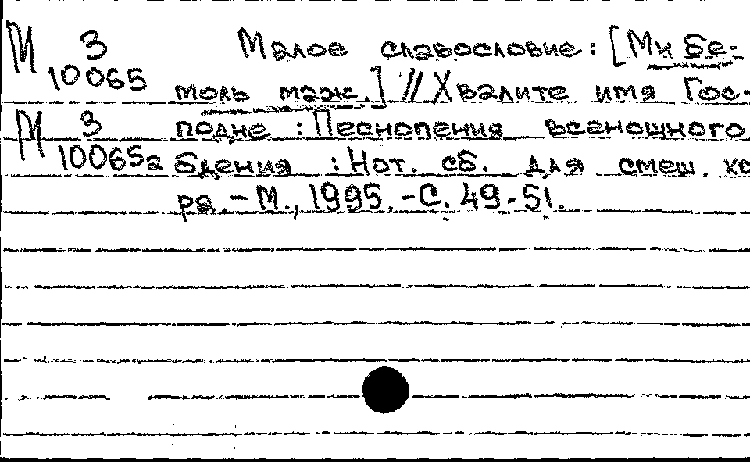 М 3 Малое славословие: [Ми бе-
10065 моль маж.] // Хвалите имя Гос-
М 3 подне : Песнопения всенощного
10065а бдения : Нот. сб. для смеш. хо
ра. – М., 1995. – С. 49-51.